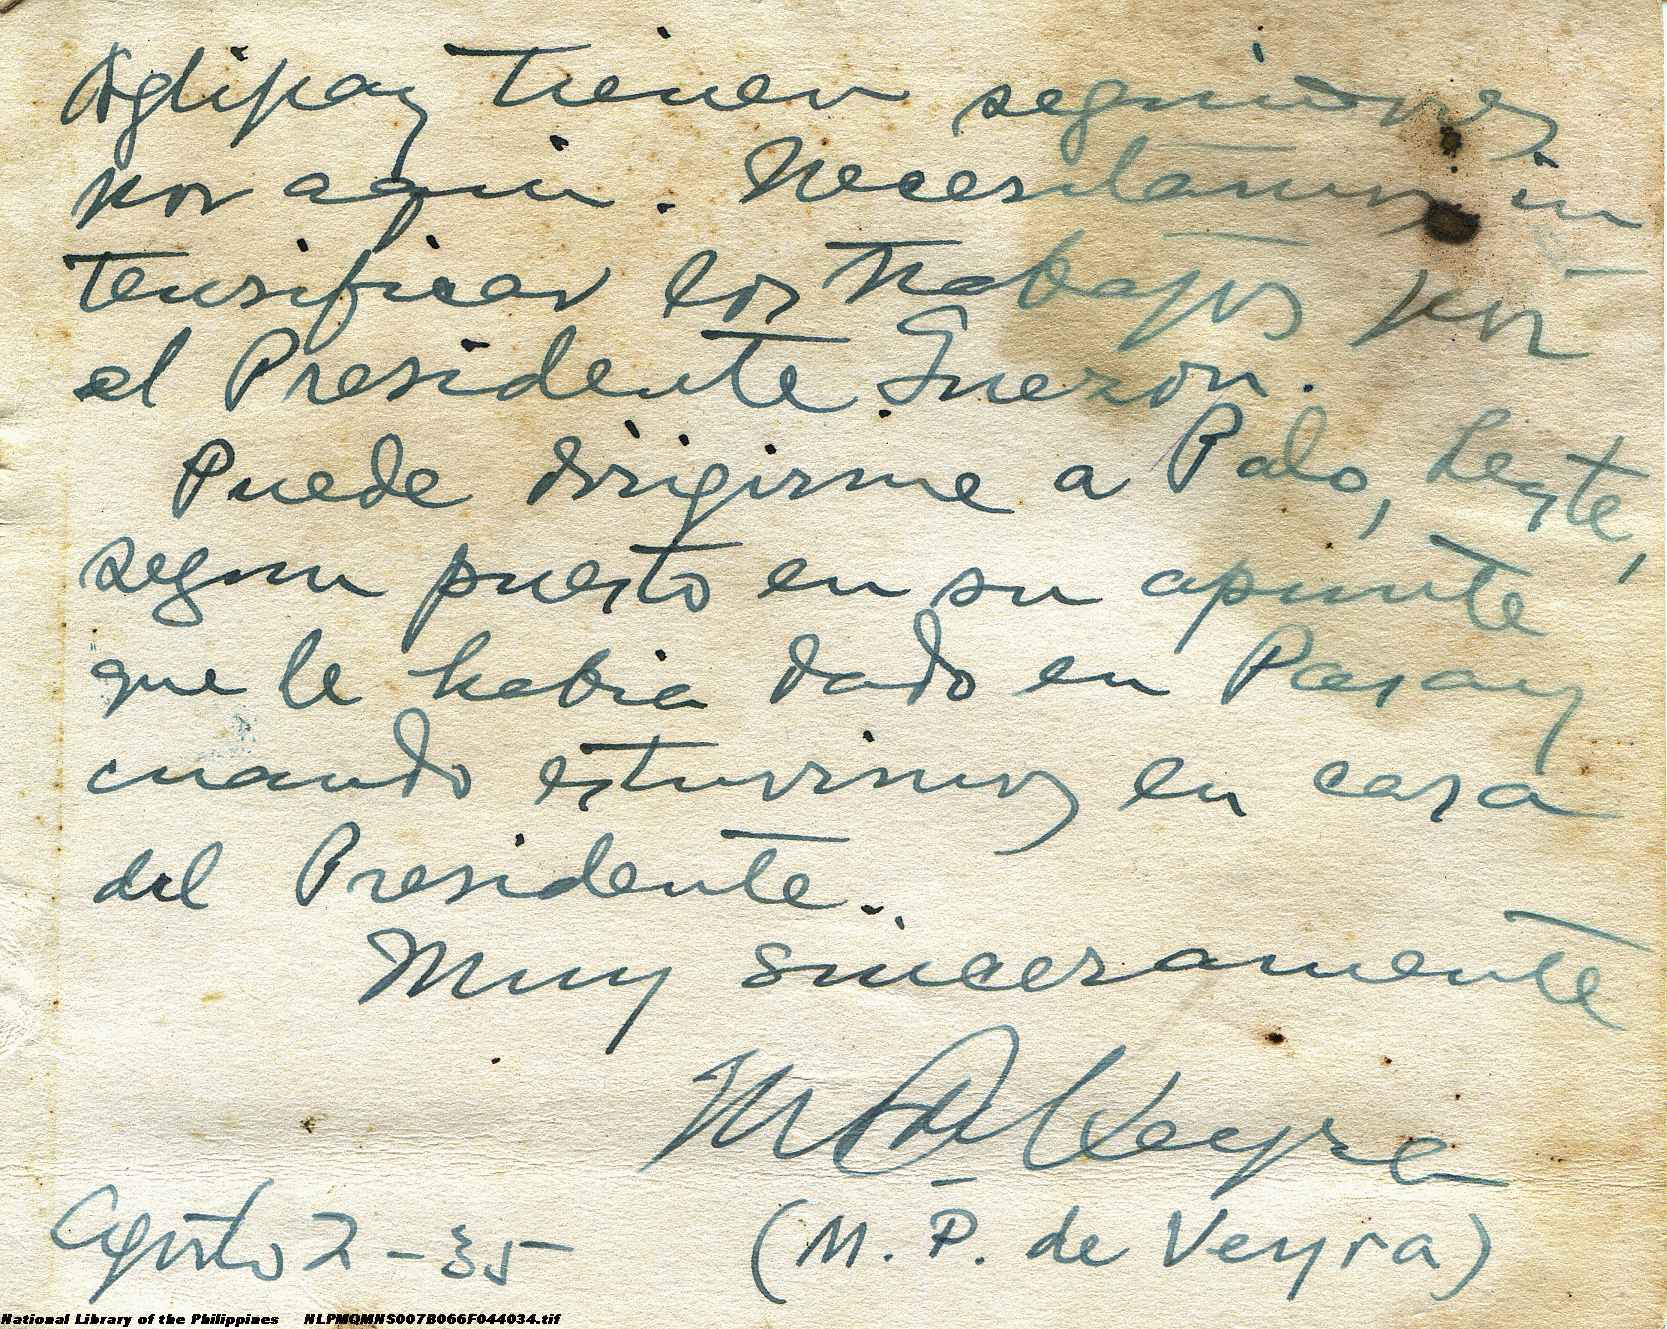 Aglipay tienen seguidores
por aqui. Necesitamos in
tensificar los trabajos por
el Presidente Quezon.
Puede dirigirme a Palo, Leyte,
segun puesto en su apunte
que le habia dado en Pasay
cuando estuvimos en casa
del Presidente.
Muy sinceramente
M P de Veyra
(M. P. de Veyra)
Agosto 2-35
National Library of the Philippines NLPMQMNS007B066F044034.tif